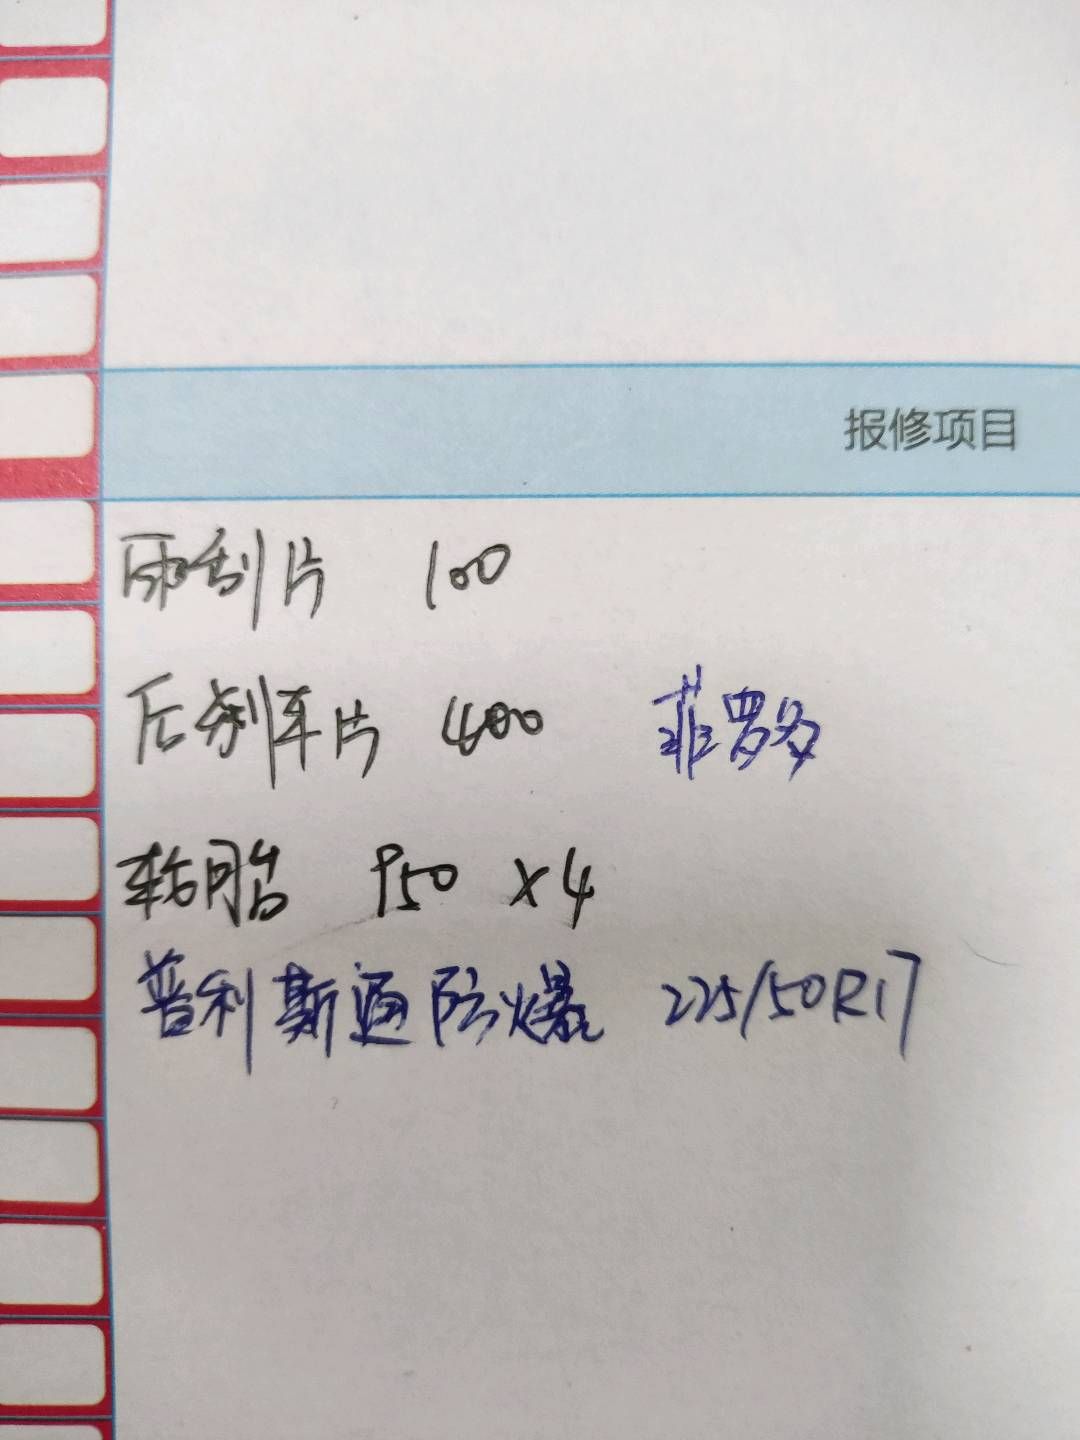 报修项目
雨刮片 100
后刹车片 400 菲罗多
轮胎 950 ×4
普利斯通防爆 225/50R17